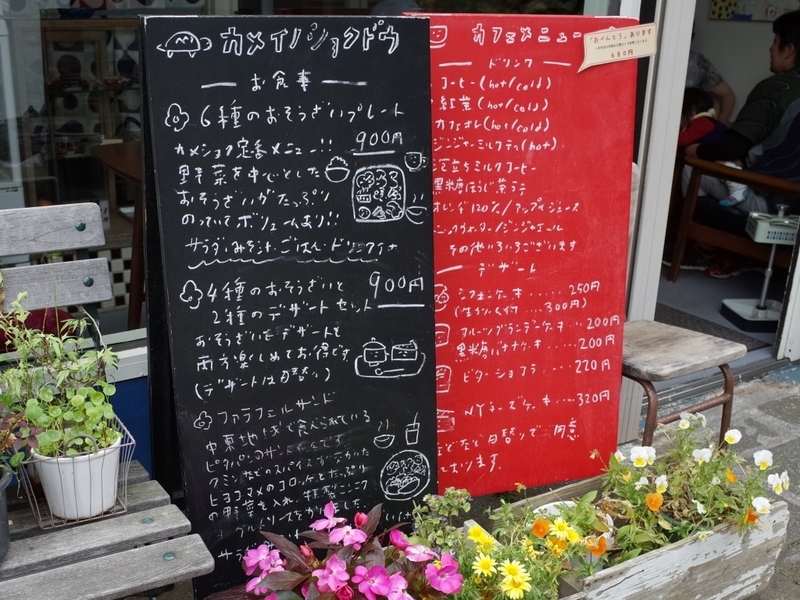 カメイノショクドウ
お食事
6種のおそうざいプレート
900円
カメショク定番メニュー!!
野菜を中心とした
おそうざいがたっぷり
のっていてボリュームあり!!
サラダ、みそ汁、ごはん、ドリンク付
4種のおそうざいと
2種のデザートセット
900円
おそうざいもデザートも
両方楽しめてお得です
(デザートは日替り)
ファラフェルサンド
中東地域で食べられている
ピタパンのサンドです
クミンなどのスパイスがきいた
ヒヨコマメのコロッケとたっぷり
の野菜を入れ、特製ニンニク
カフェメニュー
ドリンク
コーヒー(hot/cold)
紅茶(hot/cold)
カフェオレ(hot/cold)
ジンジャーミルクティ(hot)
泡立ちミルクコーヒー
黒糖ほうじ茶ラテ
オレンジ120%/アップルジュース
トニックウォーター/ジンジャエール
その他いろいろございます
デザート
シフォンケーキ ..... 250円
300円)
フルーツブランデーケーキ .. 200円
黒糖バナナケーキ .... 200円
ビターショコラ .. 220円
NYチーズケーキ ... 320円
などなど日替りでご用意
しております.
「おべんとう」あります
680円